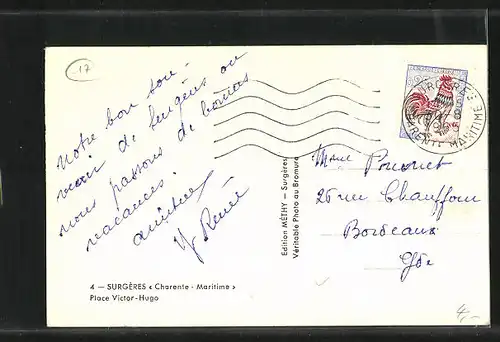 17
Notre bon sou-
venir de Surgères où
nous passons de bonnes
vacances.
amitiés
Renée
4 — SURGÈRES « Charente - Maritime »
Place Victor-Hugo
Edition MÉTHY — Surgères
Véritable Photo au Bromure
SURGÈRES
CHARENTE MARITIME
Pouquet
25 rue Chauffour
Bordeaux
Gde
4,-